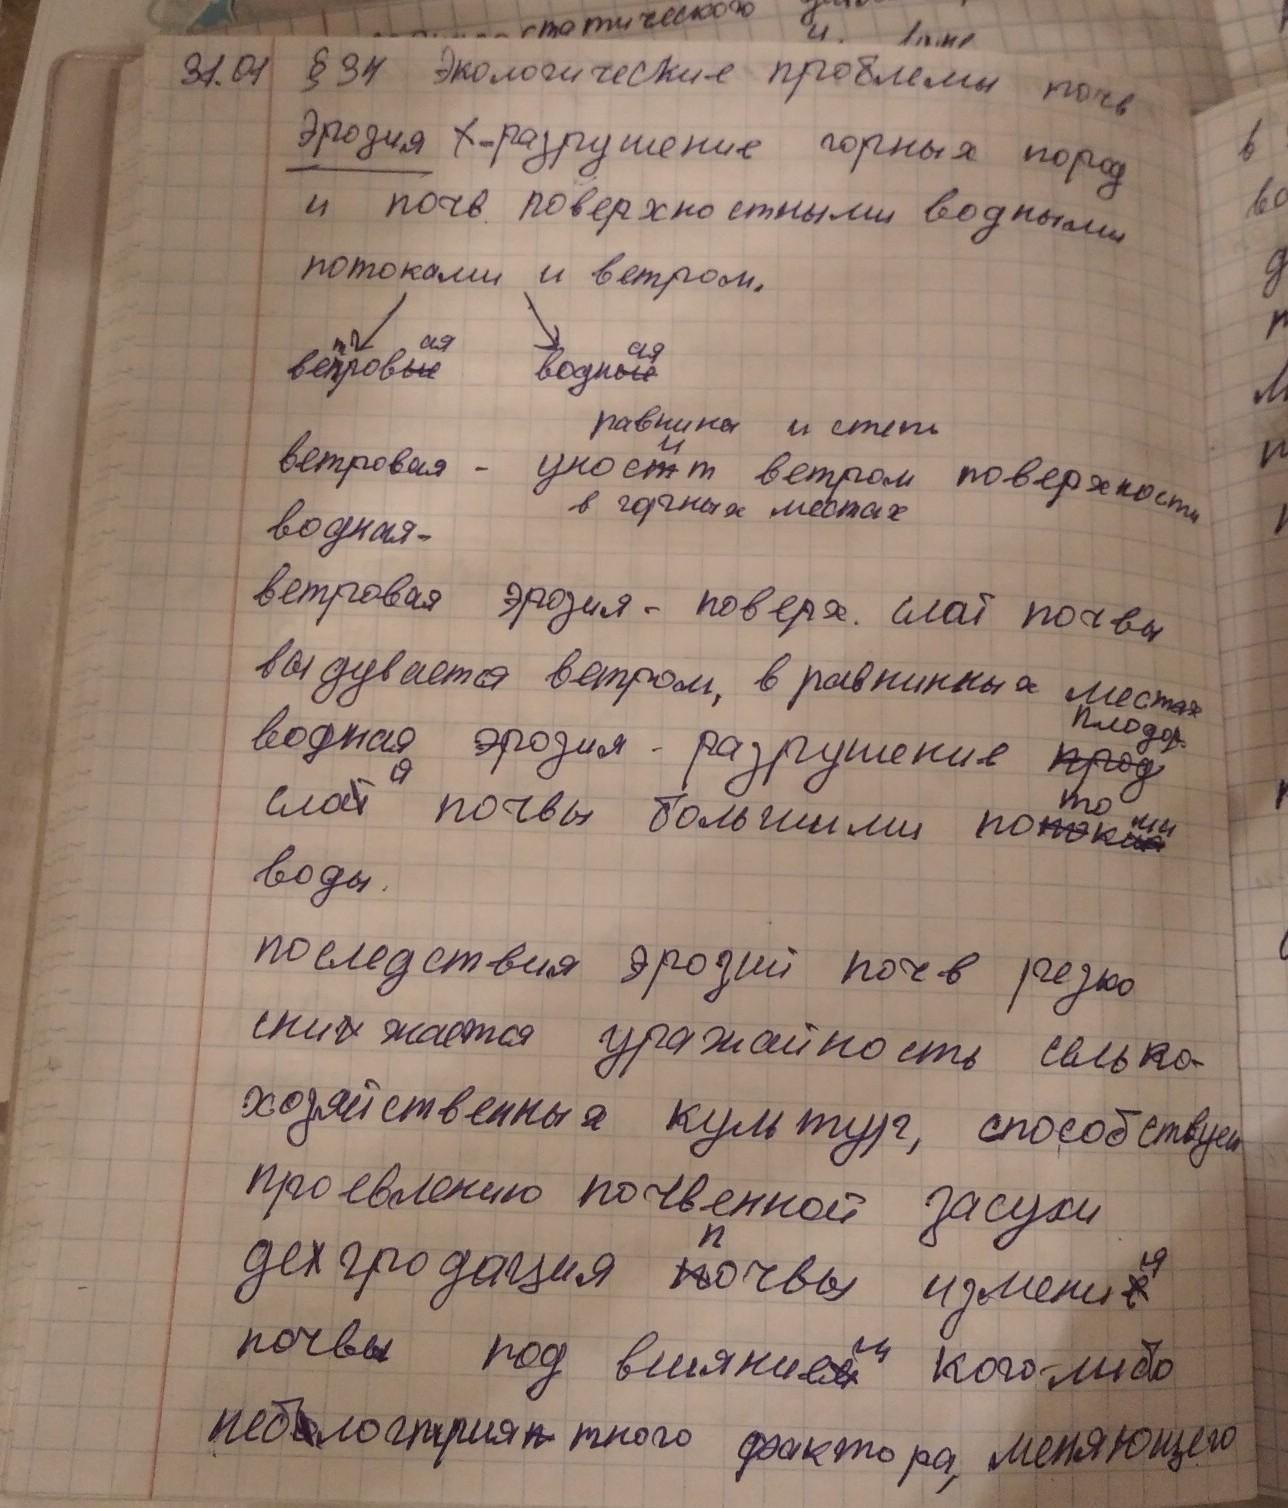 статического
31.01 § 34 Экологические проблемы почв
Эрозия - разрушение горных пород
и почв поверхностными водными
потоками и ветром.
ветровая водная
равнина и степь
ветровая - уносит ветром поверхности
в горных местах
водная-
ветровая эрозия - поверх. слай почвы
выдувается ветром, в равнинных местах
водная эрозия - разрушение плодор.
слая почвы большими потоками
воды.
последствия эрозий почв резко
снижается уражайность селько-
хозяйственных культур, способствует
проевлению почвенной засухи
деградация почвы
почвы под кого-либо
фактора, меняющего